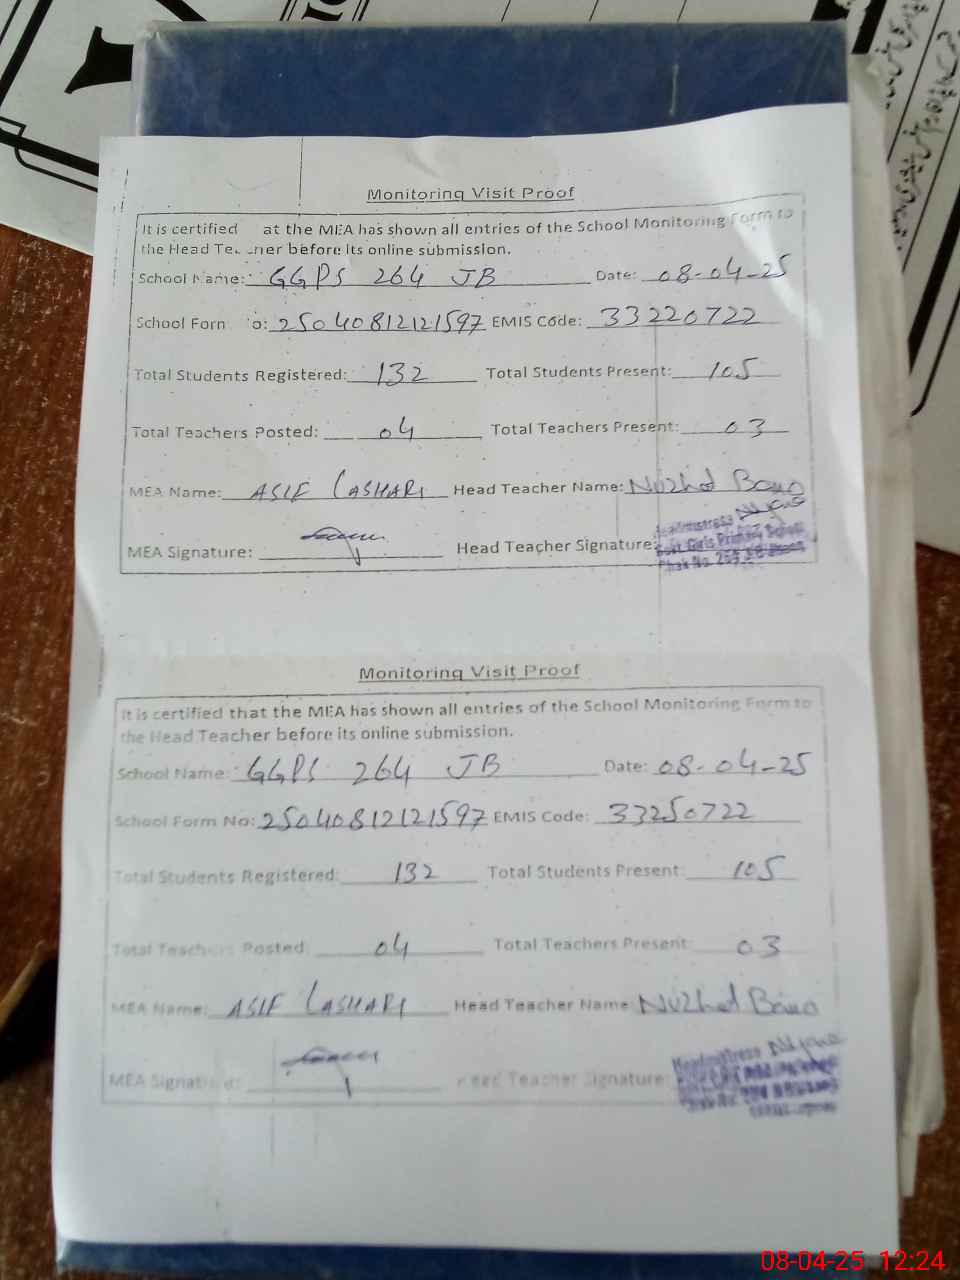 Monitoring Visit Proof
It is certified at the MEA has shown all entries of the School Monitoring Form to
the Head Te. .ner before its online submission.
School Name: GGPS 264 JB Date: 08-04-25
School Forn o: 25040812121597 EMIS Code: 33220722
Total Students Registered: 132 Total Students Present: 105
Total Teachers Posted: 04 Total Teachers Present: 03
MEA Name: ASIF LASHARI Head Teacher Name: Nuzhat Bano
MEA Signature: Head Teacher Signature:
Headmistress
Govt Girls Primary School
Chak No. 264
Monitoring Visit Proof
It is certified that the MEA has shown all entries of the School Monitoring Form to
the Head Teacher before its online submission.
School Name: GGPS 264 JB Date: 08-04-25
School Form No: 25040812121597 EMIS Code: 33250722
Total Students Registered: 132 Total Students Present: 105
Total Teachers Posted: 04 Total Teachers Present: 03
MEA Name: ASIF LASHARI Head Teacher Name: Nuzhat Bano
MEA Signature: Head Teacher Signature:
Headmistress
08-04-25 12:24